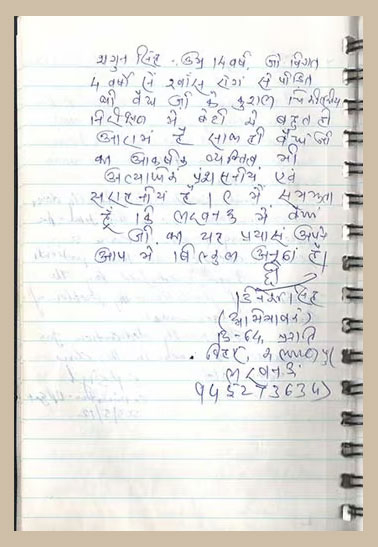 शगुन सिंह - उम्र 14 वर्ष, जो विगत
4 वर्षों से श्वांस रोग से पीडित
थी वैद्य जी के कुशल चिकित्सीय
निरीक्षण में बेटी को बहुत ही
आराम है साथ ही वैद्य जी
का आकर्षक व्यक्तित्व भी
अत्याधिक प्रशंसनीय एवं
सराहनीय है। मैं समझता
हूँ कि लखनऊ में वैद्य
जी का यह प्रयास अपने
आप में बिल्कुल अनूठा है।
(अभिभावक)
D-64, प्रगति
विहार,
लखनऊ
9452273634)